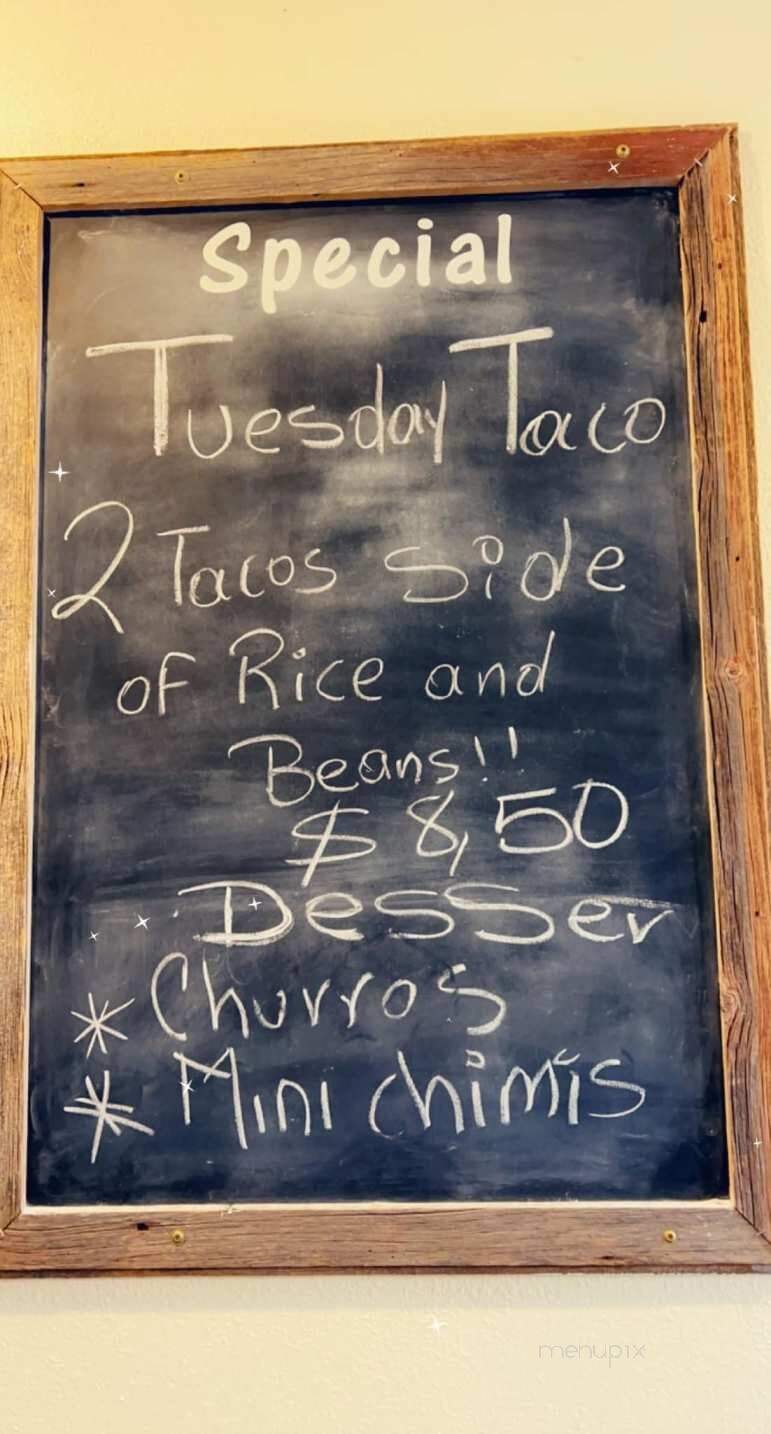 Special
Tuesday Taco
2 Tacos side
of Rice and
Beans!!
$8,50
Desser
* Churros
* Mini chimis
menupix